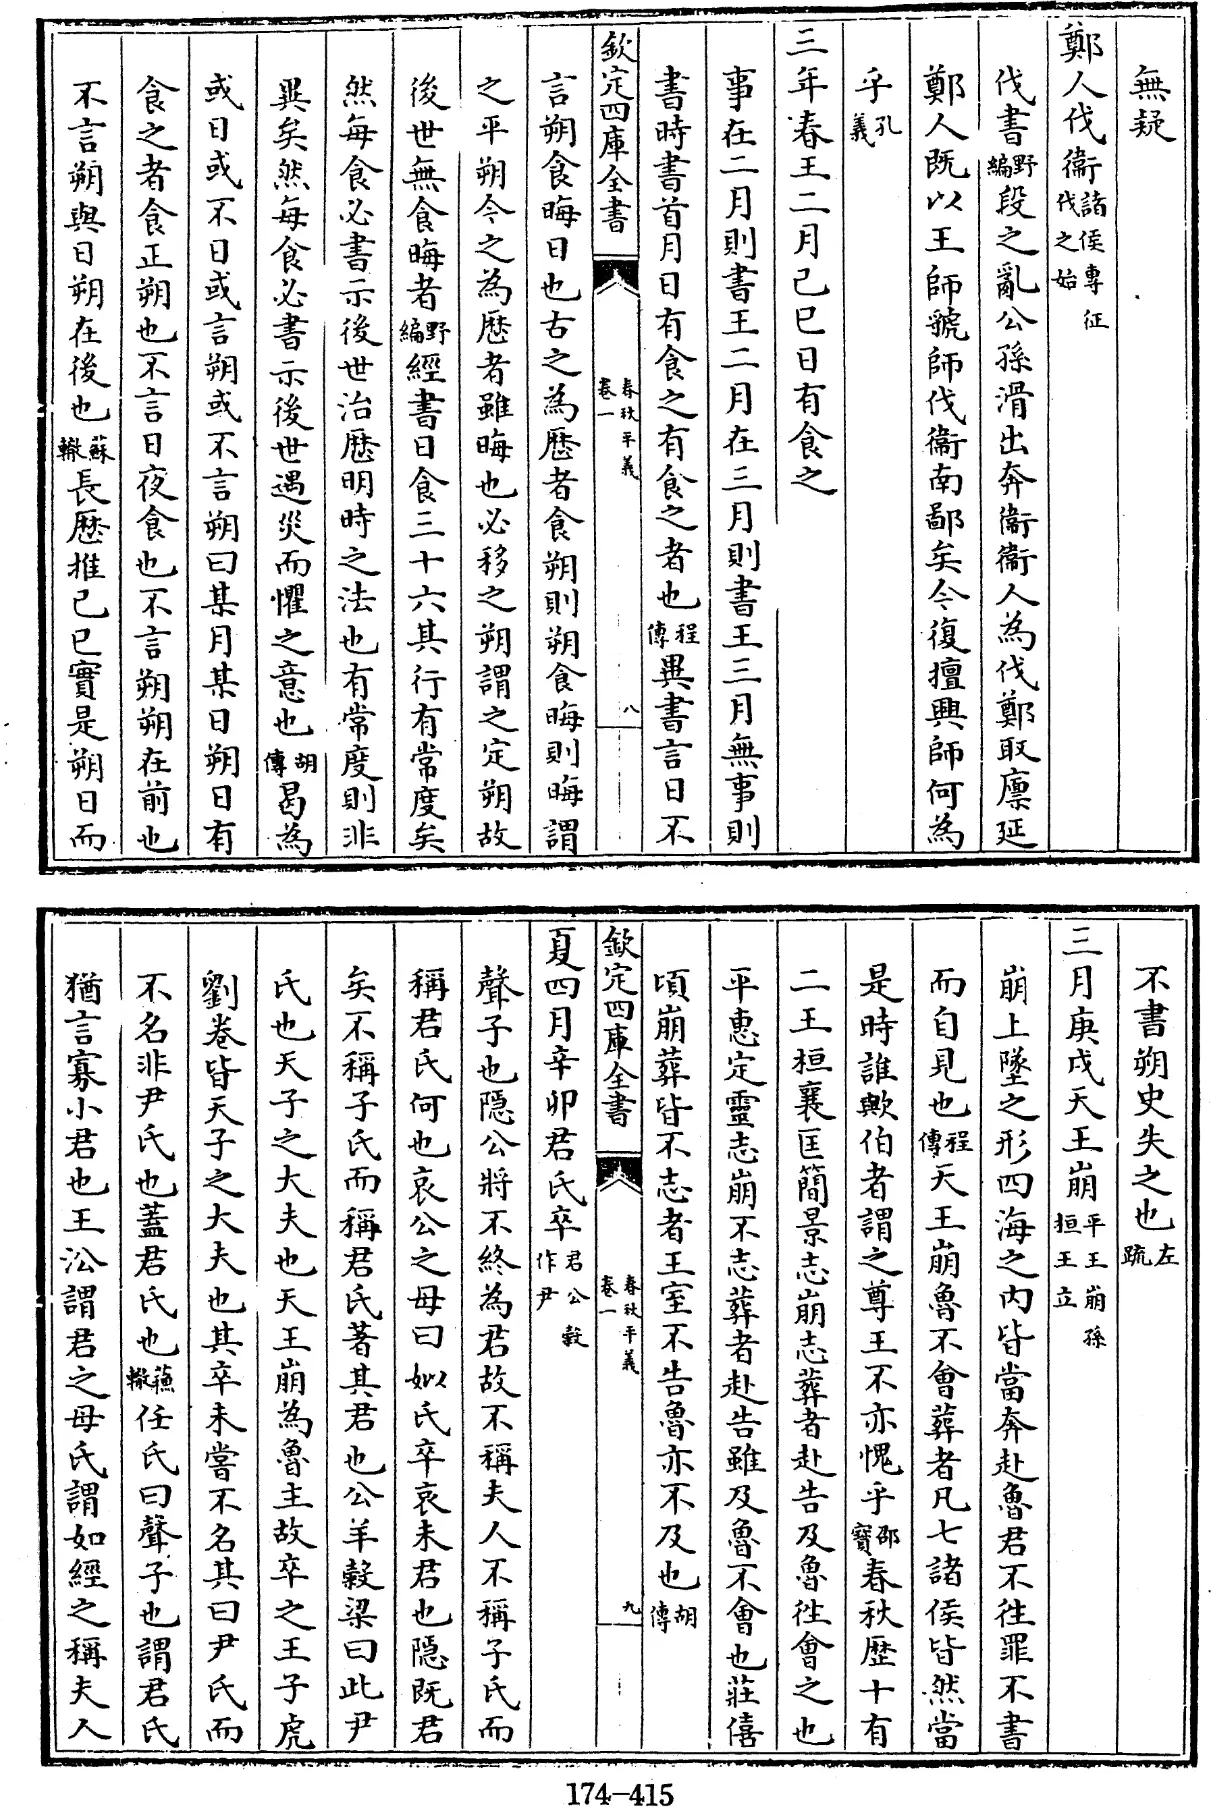 無疑
鄭人伐衞諸侯專征伐之始
伐書野編段之亂公孫滑出奔衞衞人為伐鄭取廩延
鄭人既以王師虢師伐衞南鄙矣今復擅興師何為
乎孔義
三年春王二月己巳日有食之
事在二月則書王二月在三月則書王三月無事則
書時書首月日有食之有食之者也程傳異書言日不
欽定四庫全書
春秋平義
卷一
八
言朔食晦日也古之為歴者食朔則朔食晦則晦謂
之平朔今之為歴者雖晦也必移之朔謂之定朔故
後世無食晦者野編經書日食三十六其行有常度矣
然每食必書示後世治歴明時之法也有常度則非
異矣然每食必書示後世遇災而懼之意也胡傳曷為
或日或不日或言朔或不言朔曰某月某日朔日有
食之者食正朔也不言日夜食也不言朔朔在前也
不言朔與日朔在後也蘇轍長歴推己巳實是朔日而
不書朔史失之也左疏
三月庚戌天王崩平王崩孫桓王立
崩上墜之形四海之内皆當奔赴魯君不徃罪不書
而自見也程傳天王崩魯不會葬者凡七諸侯皆然當
是時誰歟伯者謂之尊王不亦愧乎邵寶春秋歴十有
二王桓襄匡簡景志崩志葬者赴告及魯徃會之也
平惠定靈志崩不志葬者赴告雖及魯不會也莊僖
頃崩葬皆不志者王室不告魯亦不及也胡傳
欽定四庫全書
春秋平義
卷一
九
夏四月辛卯君氏卒君公穀作尹
聲子也隠公將不終為君故不稱夫人不稱子氏而
稱君氏何也哀公之母曰姒氏卒哀未君也隠既君
矣不稱子氏而稱君氏著其君也公羊穀梁曰此尹
氏也天子之大夫也天王崩為魯主故卒之王子虎
劉卷皆天子之大夫也其卒未嘗不名其曰尹氏而
不名非尹氏也蓋君氏也蘇轍任氏曰聲子也謂君氏
猶言寡小君也王氵公謂君之母氏謂如經之稱夫人
174-415